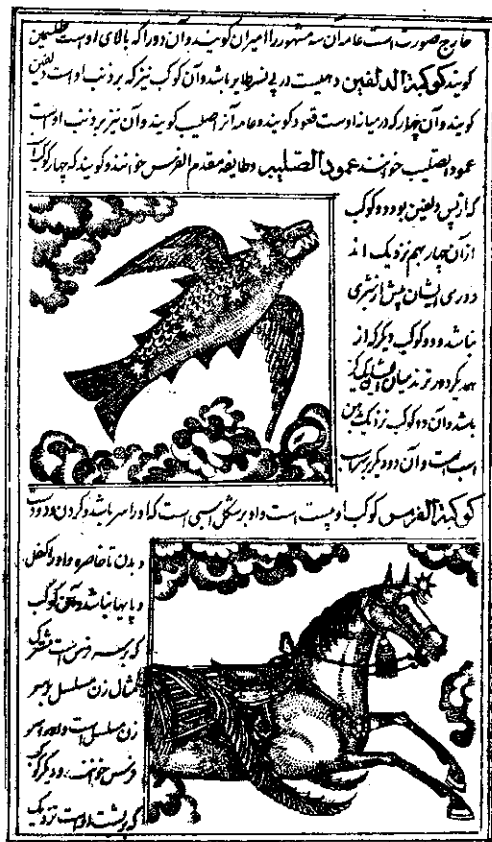 خارج صورت است عامه آن سه مشهور را میزان گویند و آن دو را که بالای اوست ظلیمین
گویند کوکبة الدلفین ده است در پی نسر طایر باشد و آن کوکب نیز که بر ذنب او است دلفین
گویند و آن چهار که در میانه اوست قعود گویند و عامه آنرا صلیب گویند و آن نیز بر ذنب اوست
عمود الصلیب خوانند عمود الصلیب و طایفه مقدم الفرس خوانند و گویند که چهار کوکب
که از پس دلفین بود دو کوکب
از آن چهار بهم نزدیک اند
دوری ایشان بیش از شبری
نباشد و دو کوکب دیگر که از
همدیگر دورترند میان ایشان یک گز
باشد و آن دو کوکب نزدیک
اسب است و آن دو دیگر بر سر
کوکبة الفرس کوکب او بیست است و او بر شکل اسبی است که او را سر باشد و گردن و دو دست
و بدن تا خاصره و او را کفل
و پایها نباشد و آن کوکب
که بر سره فرس است مشترک
زن مسلسل بر سر
زن مسلسل است و او را سر
فرس خوانند و دیگر کوکب
که بر پشت اوست نزدیک